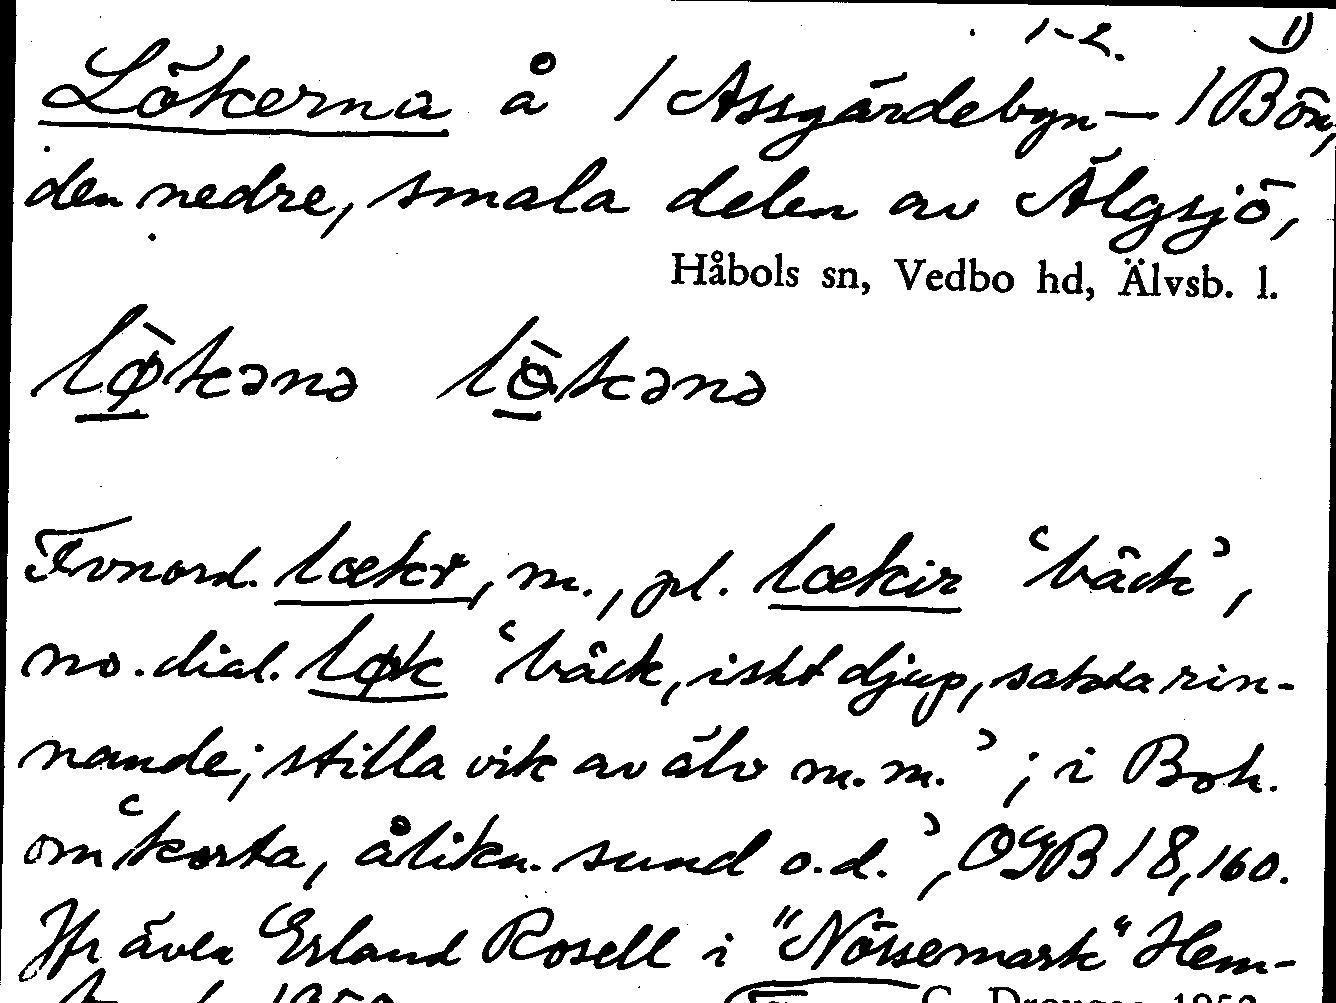 1-2. 1)
Lökerna å / Assgärdebyn — / Bön,
den nedre, smala delen av Älgsjö,
Håbols sn, Vedbo hd, Älvsb. l.
lø̀kənə lò̵kənə
Fvnord. lœkr, m., pl. lœkir ‘bäck’,
no. dial. løk ‘bäck, iskt djup, sakta rin-
nande; stilla vik av älv m.m.’; i Boh.
om ‘korta, ålikn. sund o.d.’, OGB 18,160.
Jfr även Erland Rosell i "Nössemark" Hem-
1950 C. Drougge 1952